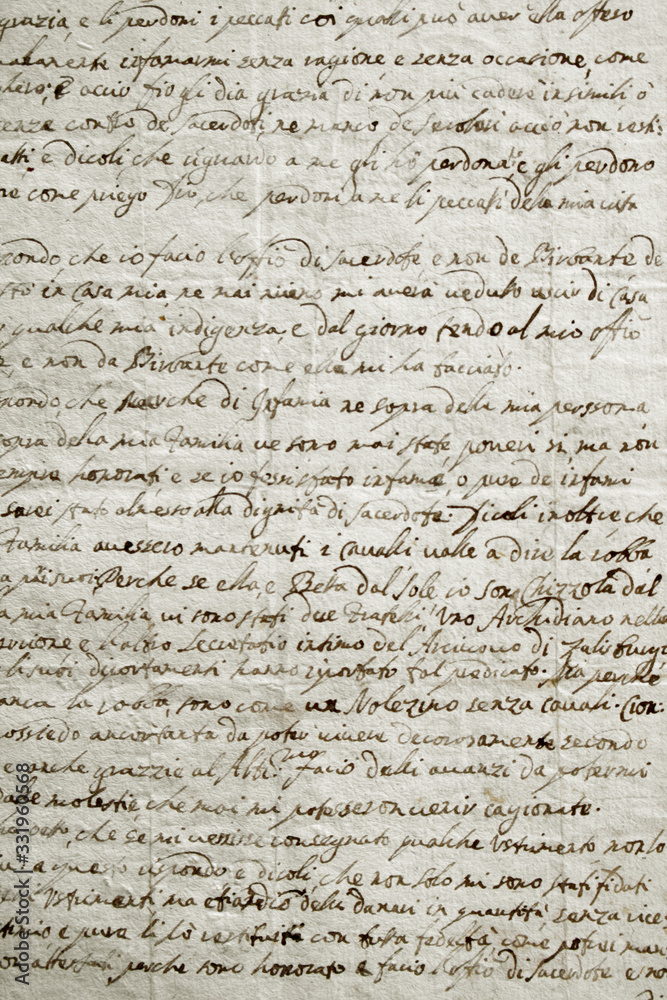 grazia, e li perdoni i peccati coi quali può aver ella offeso
infamarmi senza ragione e senza occasione, come
acciò Iio gli dia grazia di non più cadere in simili o
contro de sacerdoti, ne manco de secolari acciò non resti
e dicoli, che riguardo a me gli hò perdonati, e gli perdono
come priego Dio, che perdoni a me li peccati della mia vita
che io facio l'offio di sacerdote, e non de Birbante de
in Casa mia ne mai niuno mi averà veduto uscir di Casa
qualche mia indigenza, e dal giorno tendo al mio offio
e non da Birbante come ella mi ha facciato.
che Marche di Infamia ne sopra della mia perssona
della mia Familia ve sono mai state, poveri si, ma non
honorati, e se io fossi stato infame, o pure de infami
sarei stato almesso alla dignità di sacerdote. Dicoli inoltre che
Familia avessero mantenuti i Cavalli valle a dire la robba
Perche se ella, e Beta dal Sole io son Chizzola dal
mia Familia, vi sono stati due Fratelli, Uno Archidiano nella
e l'altro Secretario intimo del Arcivovo di Zalisburgo
hanno riportato tal predicato. Ma perche
la robba, sono come un Nolezino senza Cavali. Cion.
ancor tanta da poter vivere decorosamente secondo
e anche grazzie al Alti.mo facio delli avanzi da potermi
molestie, che mai mi potesser venir cagionate.
che se mi venisse consegnato qualche Vestimento non lo
a questo rispondo, e dicoli che non solo mi sono stati fidati
Vestimenti ma etiandio delli danari in quantità senza rice-
e pure li hò restituiti con tutta fedeltà, come potrei
perche sono honorato e facio l'offio di Sacerdote e no
Adobe Stock | #331960568